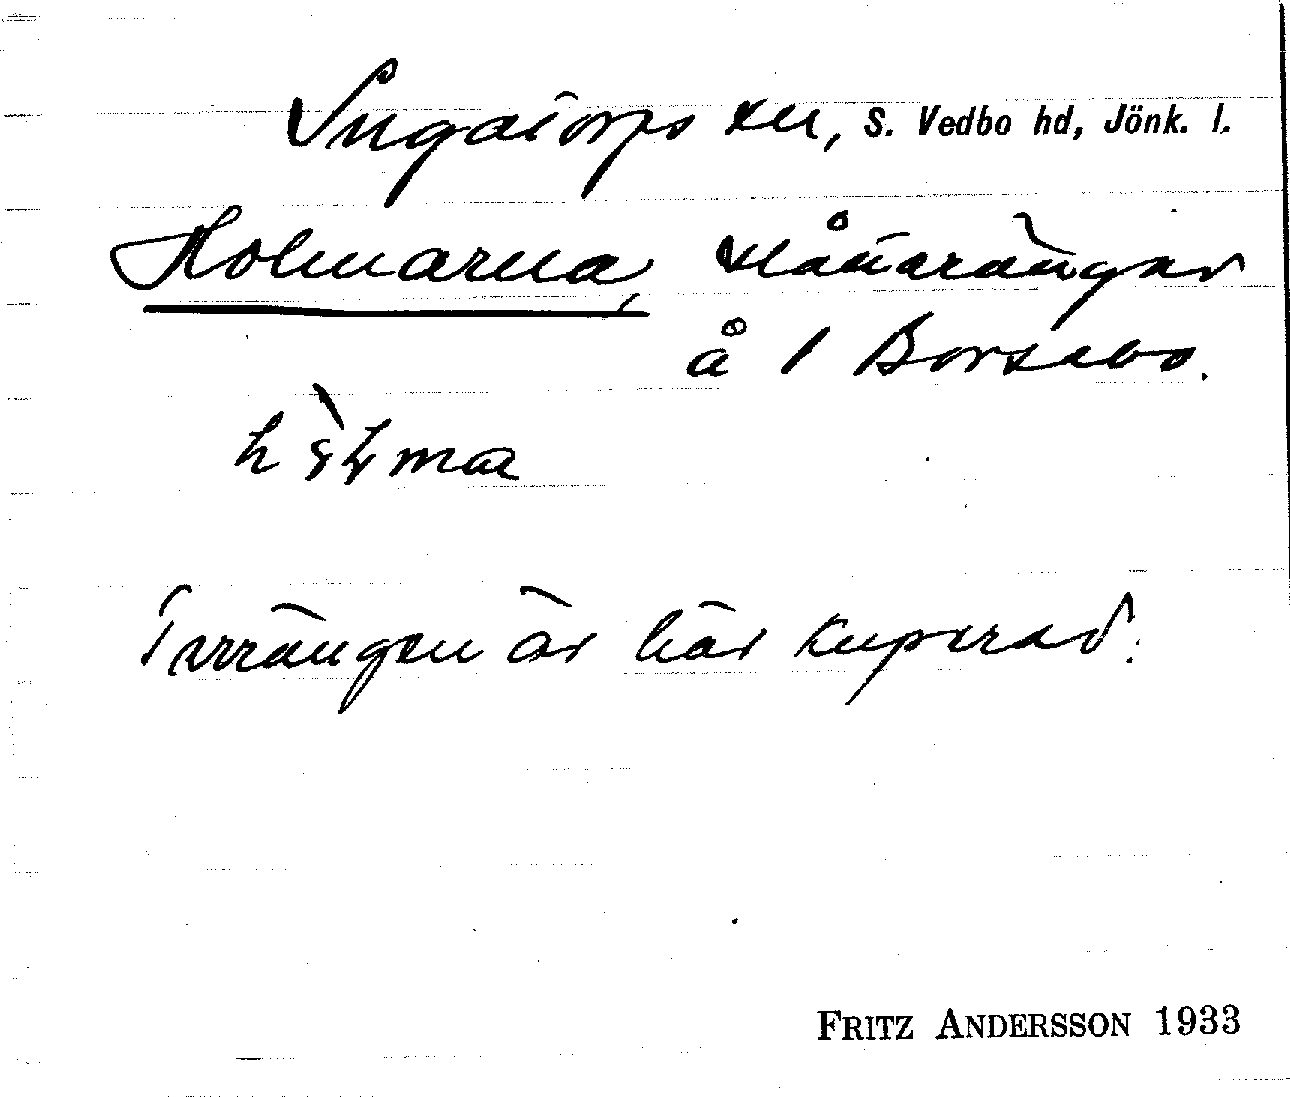 Ingatorps sn, S. Vedbo hd, Jönk. l.
Holmarna, slåtterängar
å 1 Borsebo.
Terrängen är här kuperad.
FRITZ ANDERSSON 1933